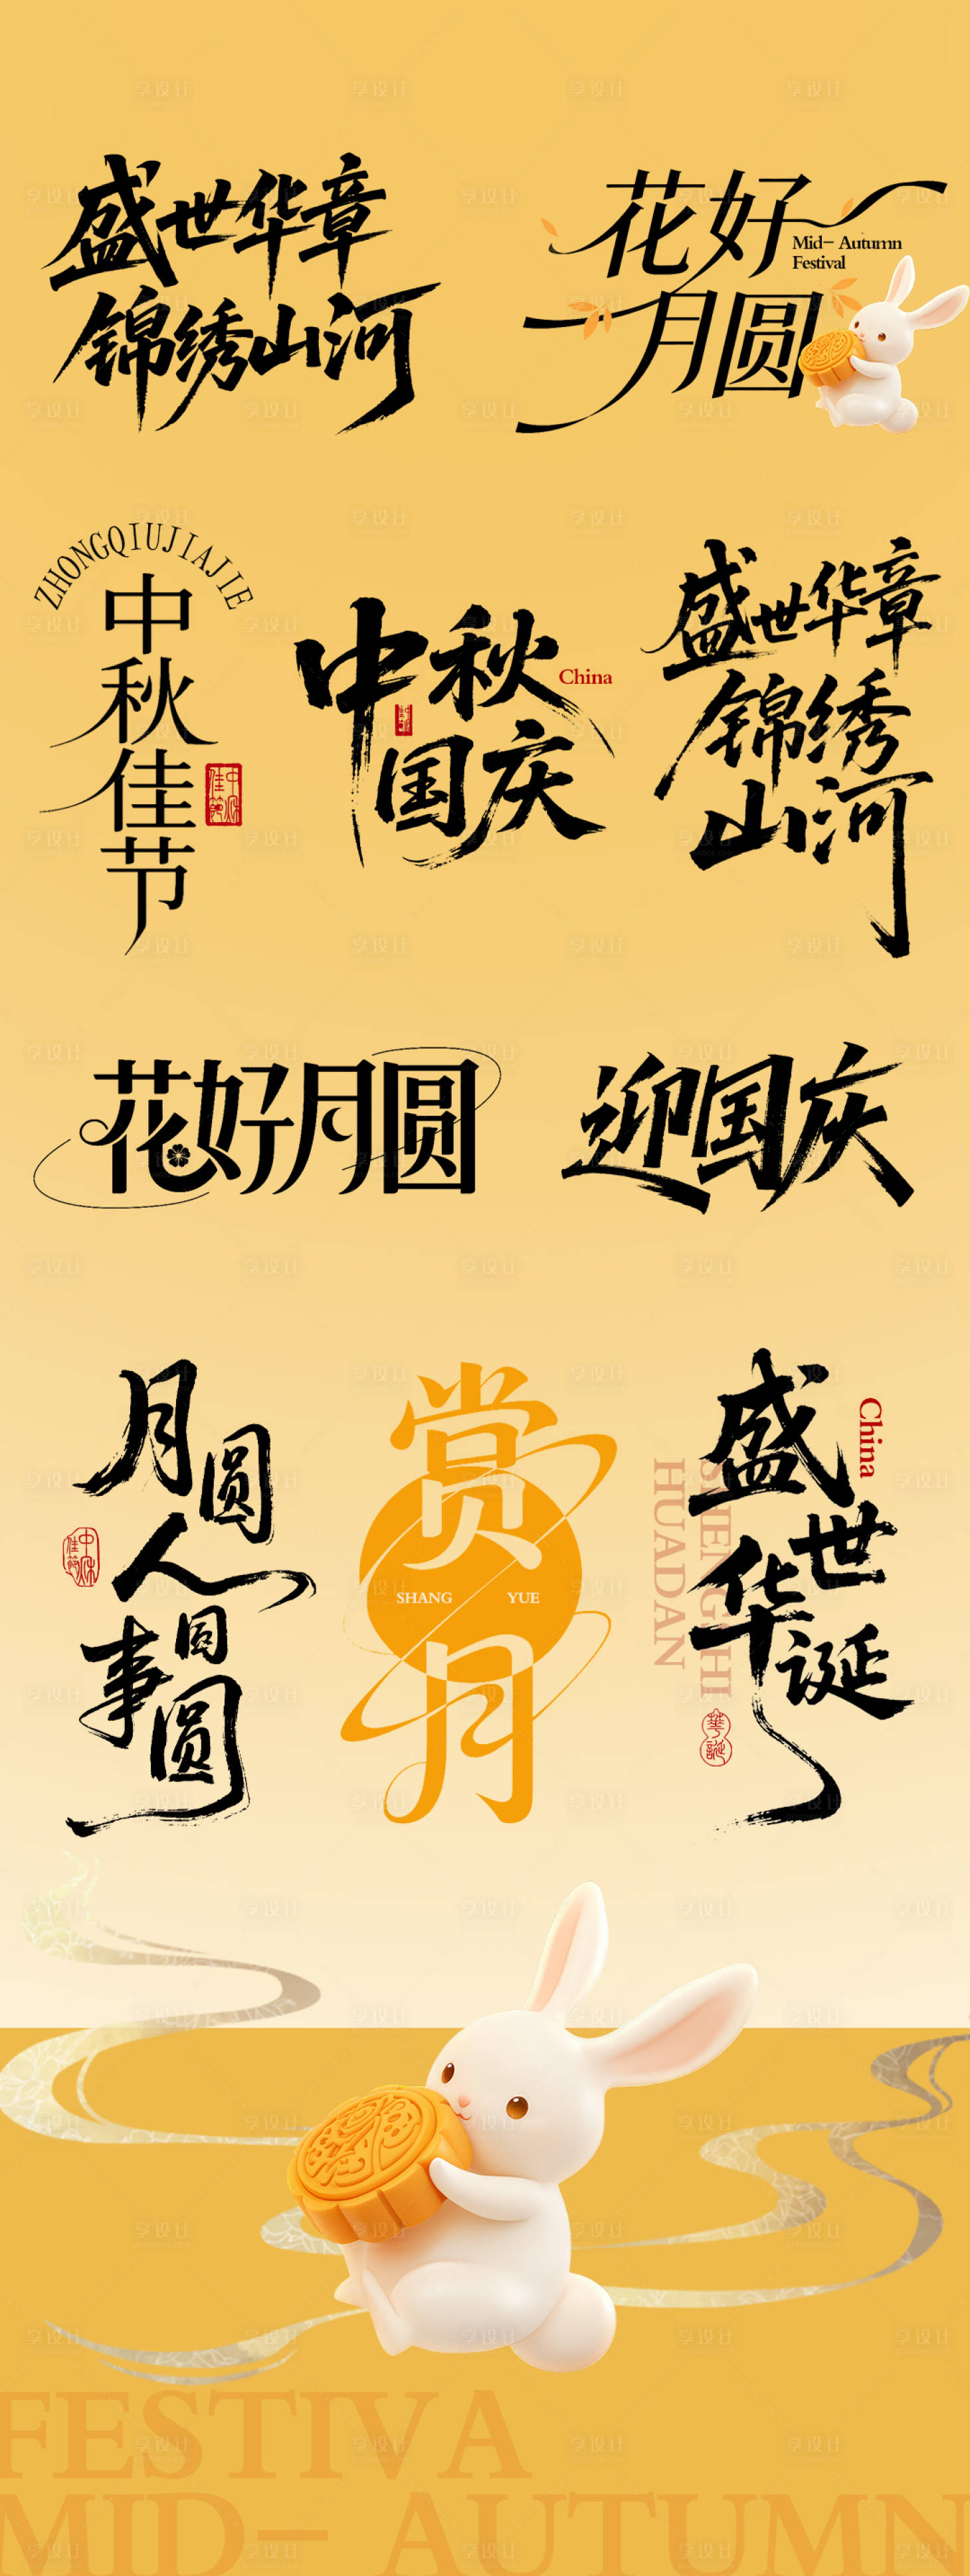 盛世华章
锦绣山河
花好
Mid- Autumn
Festival
月圆
ZHONGQIUJIAJIE
中秋佳节
中秋
佳节
中秋
China
国庆
盛世华章
锦绣
山河
花好月圆
迎国庆
月圆
人团
事圆
中秋
佳节
赏
SHANG YUE
月
China
盛世
华诞
SHENGSHI
HUADAN
華誕
FESTIVA
MID- AUTUMN
享设计